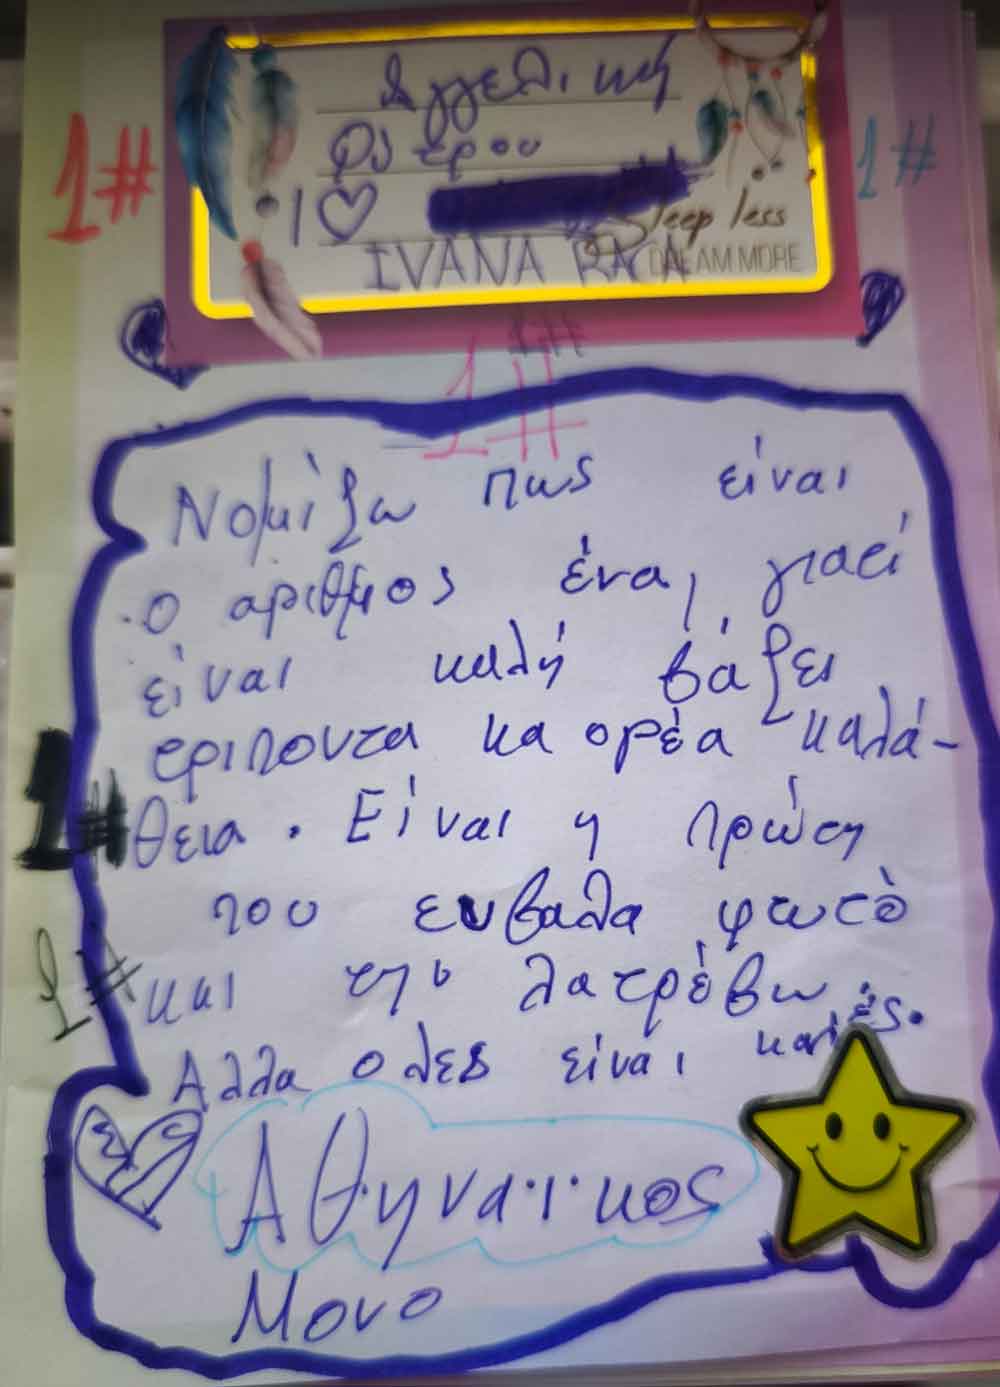 Αγγελική
Φυτρου
1# I ♡ Sleep less 1#
IVANA RACA DREAM MORE
1#
1#
Νομίζω πως είναι
ο αριθμος ένα, γιατί
είναι καλή βάζει
τριποντα κα ορέα καλά-
1# θεια. Είναι η πρώτη
που ευβαλα φωτό
1# και την λατρέβω.
Αλλα ολες είναι καλές.
Αθηναικος
Μονο